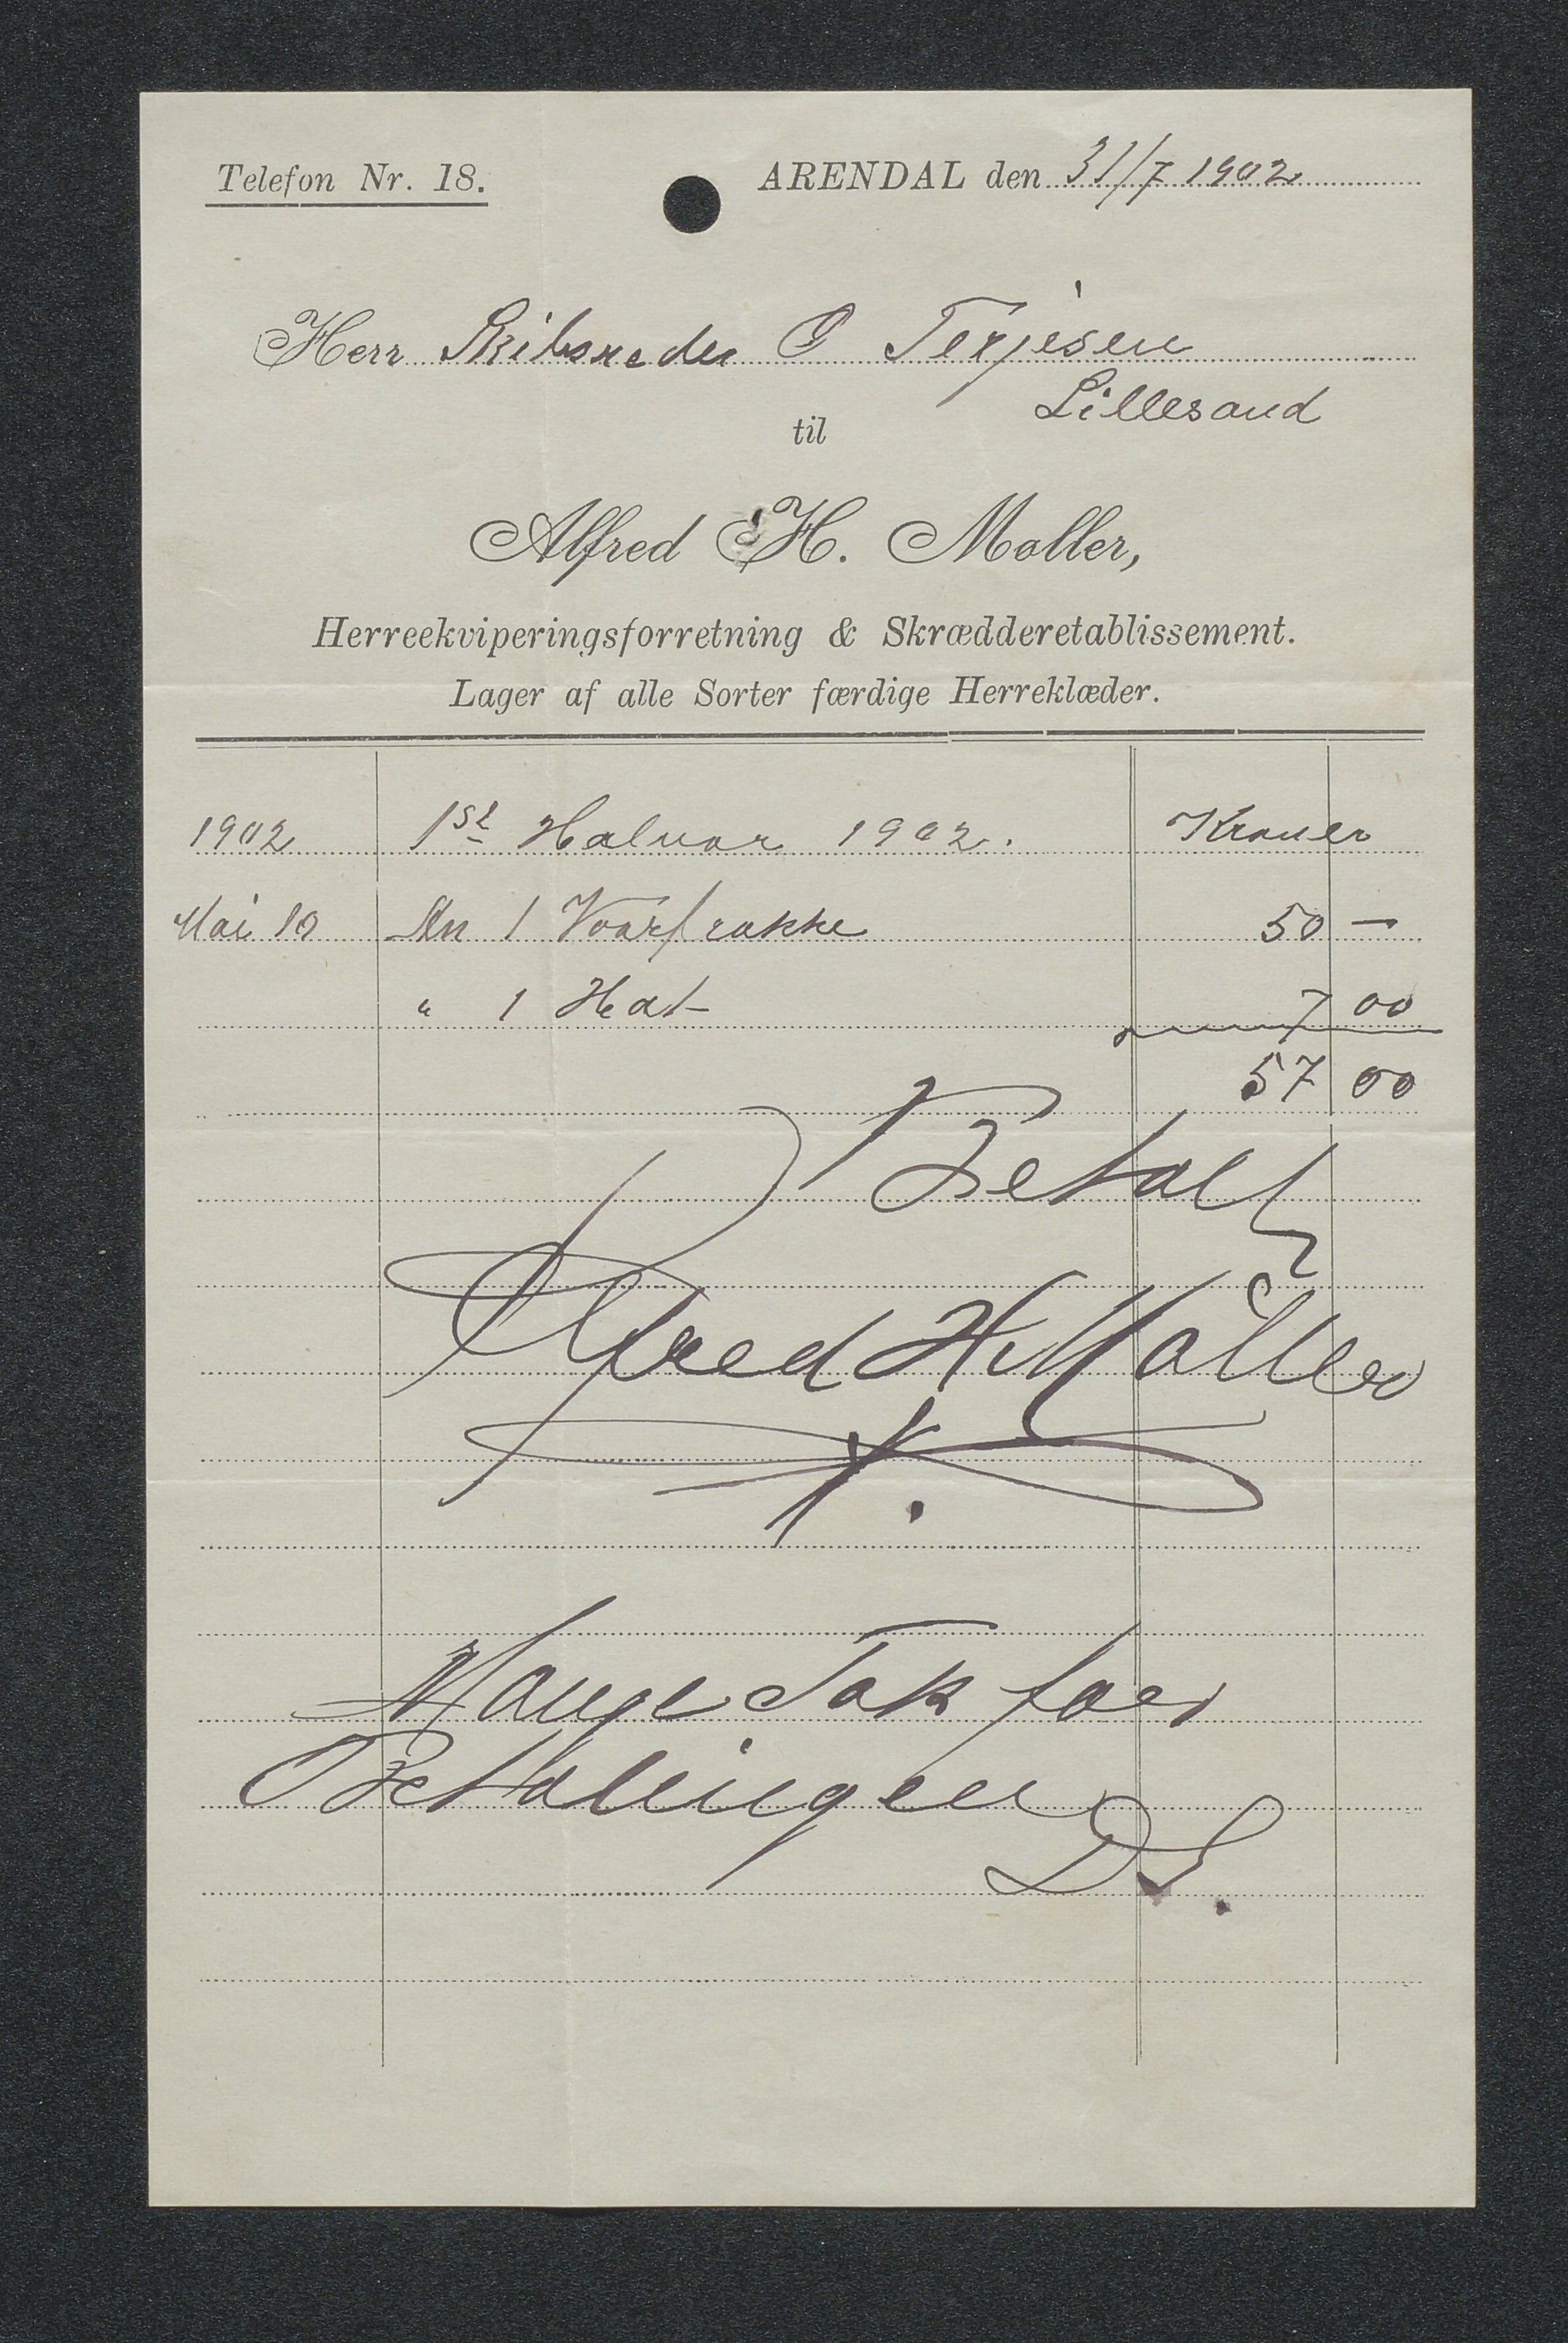 Telefon Nr. 18.
ARENDAL den 31/7 1902
Herr Skibsreder O Terjesen
Lillesand
til
Alfred H. Møller,
Herreekviperingsforretning & Skrædderetablissement.
Lager af alle Sorter færdige Herreklæder.
1902 1st Halvaar 1902. Kroner
Mai 10 An 1 Vaarfrakke 50 -
" 1 Hat 7 00
57 00
Betalt
Alfred H Møller
Mange Tak for
Betalingen
DS.